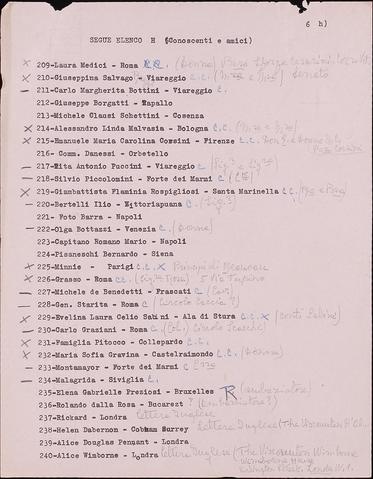 6 h)
SEGUE ELENCO H (Conoscenti e amici)
x 209-Laura Medici - Roma C.C. (Donna)
x 210-Giuseppina Salvago - Viareggio C.C.
— 211-Carlo Margherita Bottini - Viareggio C.
212-Giuseppe Borgatti - Rapallo
213-Michele Clausi Schettini - Cosenza
x 214-Alessandro Linda Malvasia - Bologna C.C.
x 215-Emanuele Maria Carolina Corsini - Firenze C.C.
216- Comm. Danessi - Orbetello
— 217-Mita Antonio Puccini - Viareggio C
— 218-Silvio Piccolomini - Forte dei Marmi C
x 219-Giambattista Flaminia Rospigliosi - Santa Marinella C.C.
— 220-Bertelli Ilio - Vittoriapuana C
221- Foto Barra - Napoli
— 222-Olga Bottazzi - Venezia C. (Donna)
223-Capitano Romano Mario - Napoli
224-Pisaneschi Bernardo - Siena
x 225-Minnie - Parigi C.C. x
x 226-Grasso - Roma C.C.
— 227-Michele de Benedetti - Frascati C
— 228-Gen. Starita - Roma C (Circolo Caccia?)
x 229-Evelina Laura Celio Sabini - Ala di Stura C.C. x (conti Sabini)
— 230-Carlo Graziani - Roma C.
x 231-Famiglia Pitocco - Collepardo C.C.
x 232-Maria Sofia Gravina - Castelraimondo C.C. (Donna)
— 233-Montamayor - Forte dei Marmi C
— 234-Malagrida - Siviglia C.
235-Elena Gabrielle Preziosi - Bruxelles R (ambasciatore)
236-Rolando dalla Rosa - Bucarest ? (ambasciatore?)
237-Rickard - Londra Lettere Inglesi
238-Helen Dabernon - Cobham Surrey Lettere Inglesi (The Viscountess
239-Alice Douglas Pennant - Londra
240-Alice Winborne - Londra Lettere Inglesi (The Viscountess Wimborne
Wimborne House
Londra W.1.